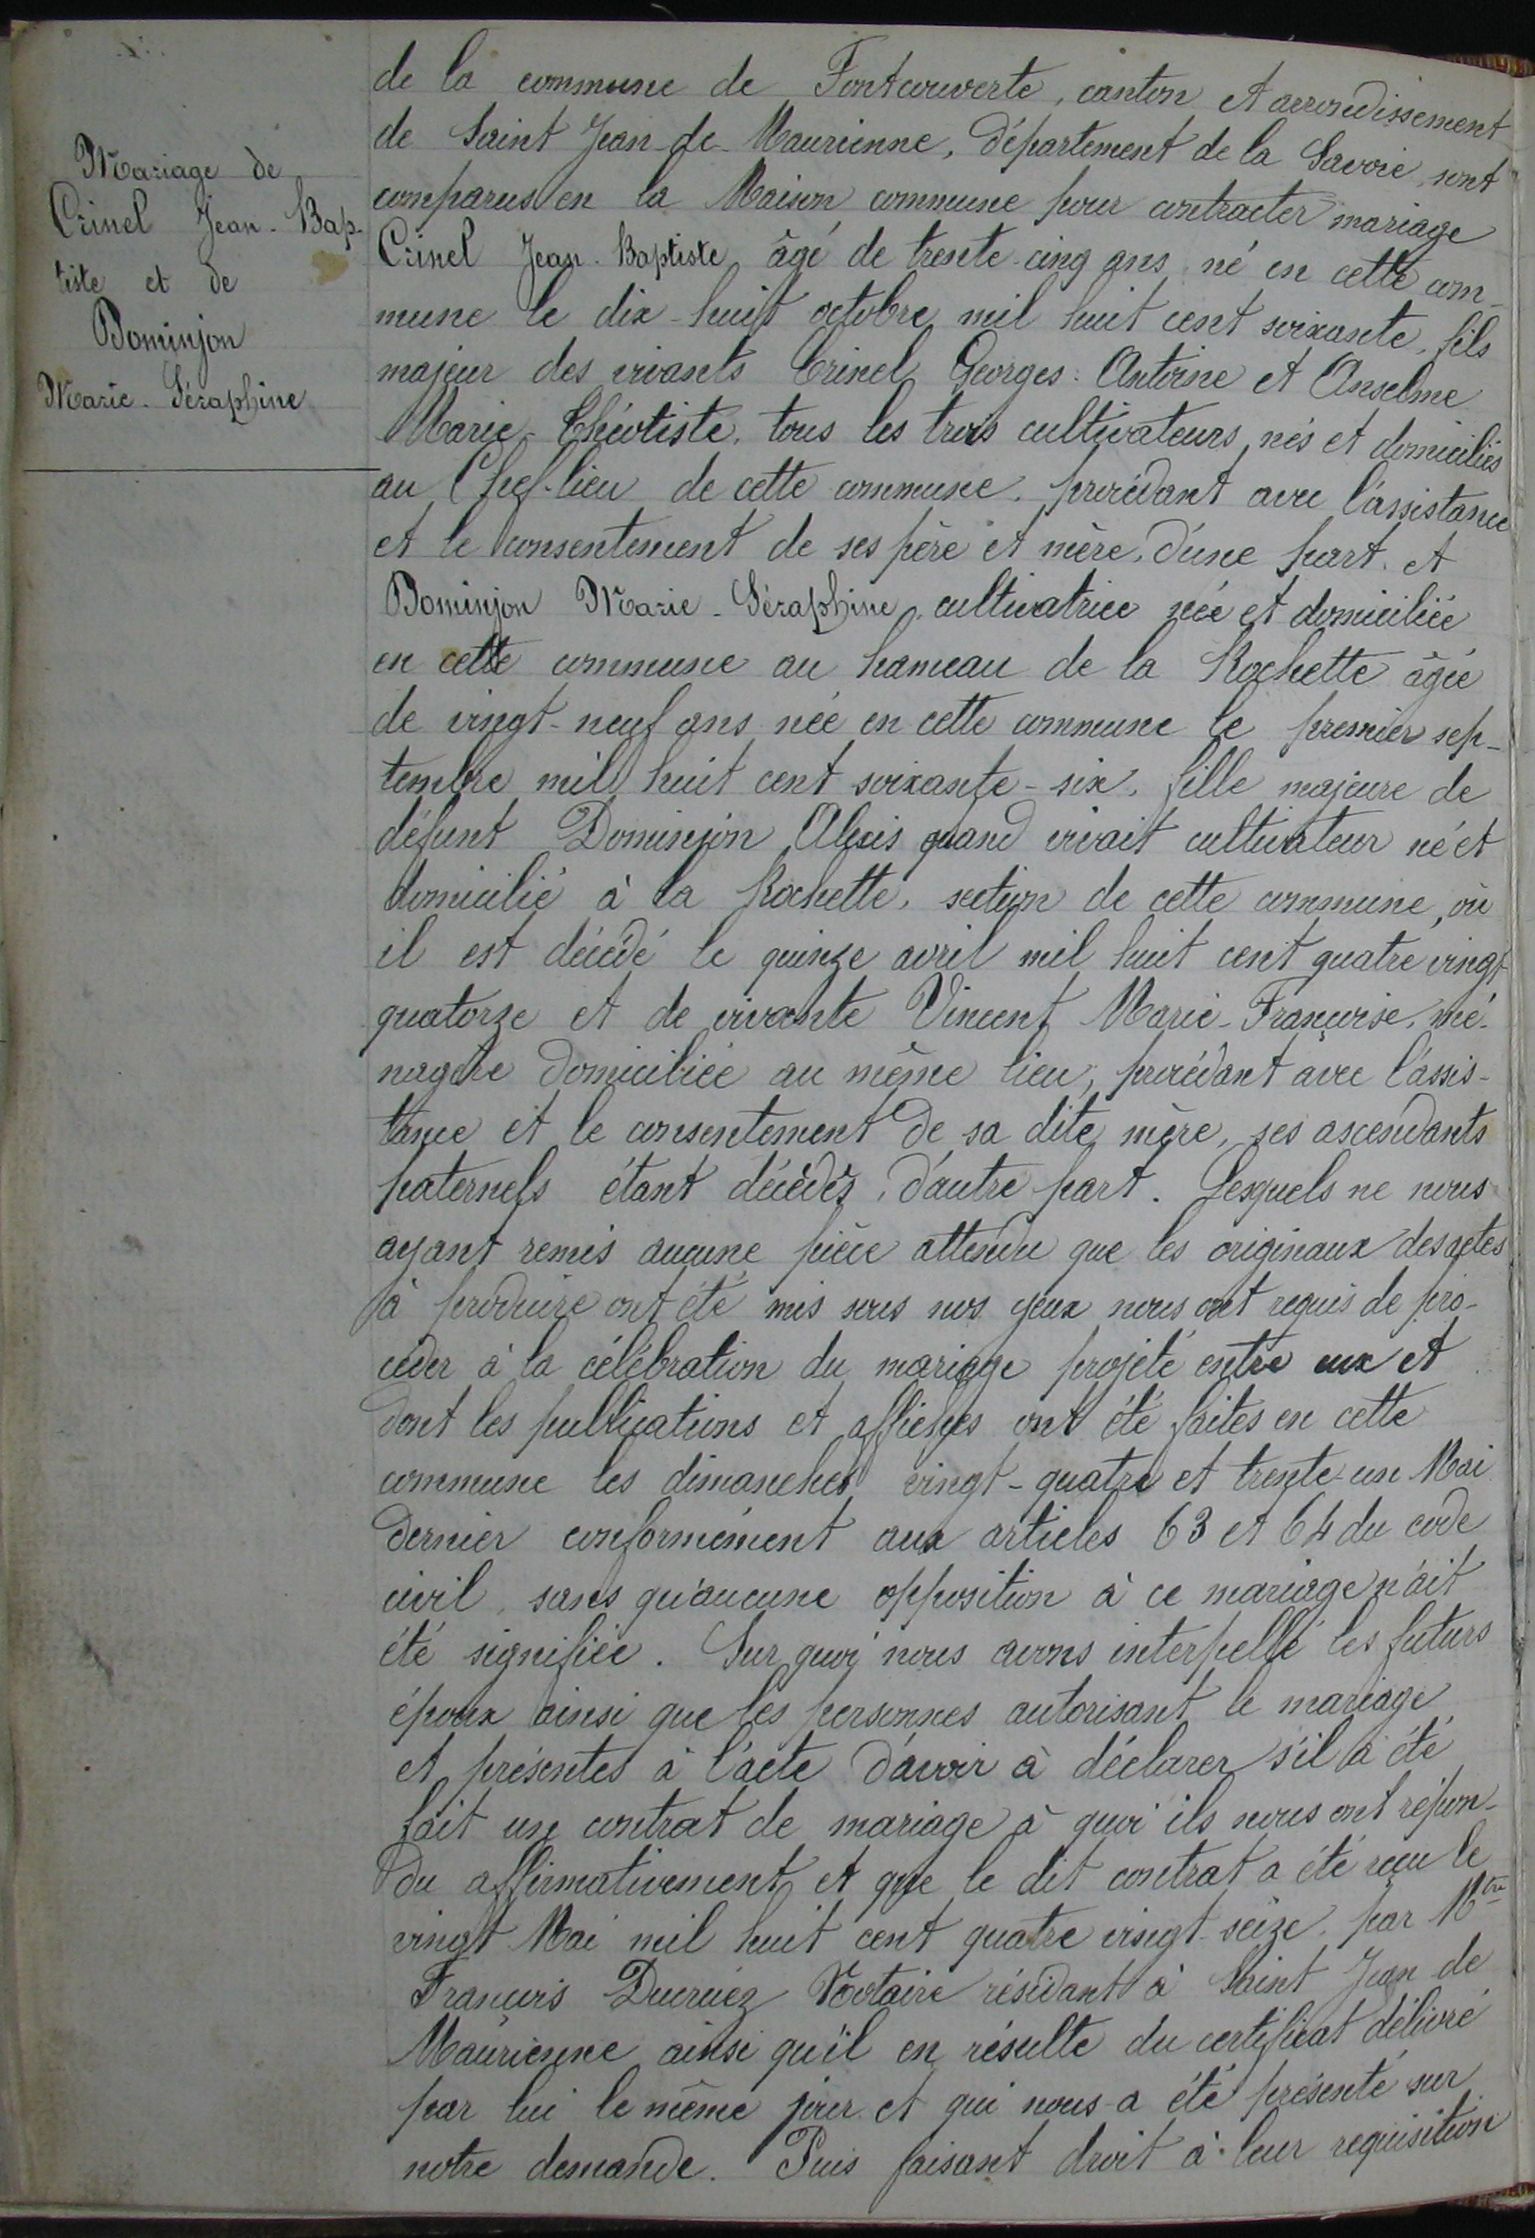 Mariage de
Crinel Jean-Bap-
tiste et de
Dominjon
Marie-Séraphine
de la commune de Fontcouverte, canton et arrondissement
de Saint Jean-de-Maurienne, département de la Savoie, sont
comparus en la Maison commune pour contracter mariage
Crinel Jean-Baptiste âgé de trente-cinq ans né en cette com-
mune le dix-huit octobre mil huit cent soixante, fils
majeur des vivants Crinel Georges-Antoine et Anselme
Marie-Théotiste, tous les trois cultivateurs, nés et domiciliés
au Chef-lieu de cette commune, procédant avec l'assistance
et le consentement de ses père et mère, d'une part, et
Dominjon Marie-Séraphine, cultivatrice née et domiciliée
en cette commune au hameau de la Rochette âgée
de vingt-neuf ans née en cette commune le premier sep-
tembre mil huit cent soixante-six, fille majeure de
défunt Dominjon Alexis quand vivait cultivateur né et
domicilié à la Rochette, section de cette commune, où
il est décédé le quinze avril mil huit cent quatre vingt
quatorze et de vivante Vincent Marie-Françoise, mé-
nagère domiciliée au même lieu, procédant avec l'assis-
tance et le consentement de sa dite mère, ses ascendants
paternels étant décédés, d'autre part. Lesquels ne nous
ayant remis aucune pièce attendu que les originaux des actes
à produire ont été mis sous nos yeux nous ont requis de pro-
céder à la célébration du mariage projeté entre eux et
dont les publications et affiches ont été faites en cette
commune les dimanches vingt-quatre et trente-un Mai
dernier conformément aux articles 63 et 64 du code
civil, sans qu'aucune opposition à ce mariage n'ait
été signifiée. Sur quoi nous avons interpellé les futurs
époux ainsi que les personnes autorisant le mariage
et présentes à l'acte d'avoir à déclarer s'il a été
fait un contrat de mariage à quoi ils nous ont répon-
du affirmativement et que le dit contrat a été reçu le
vingt Mai mil huit cent quatre vingt-seize, par Mtre
François Ducruez Notaire résidant à Saint Jean de
Maurienne ainsi qu'il en résulte du certificat délivré
par lui le même jour et qui nous a été présenté sur
notre demande. Puis faisant droit à leur requisition